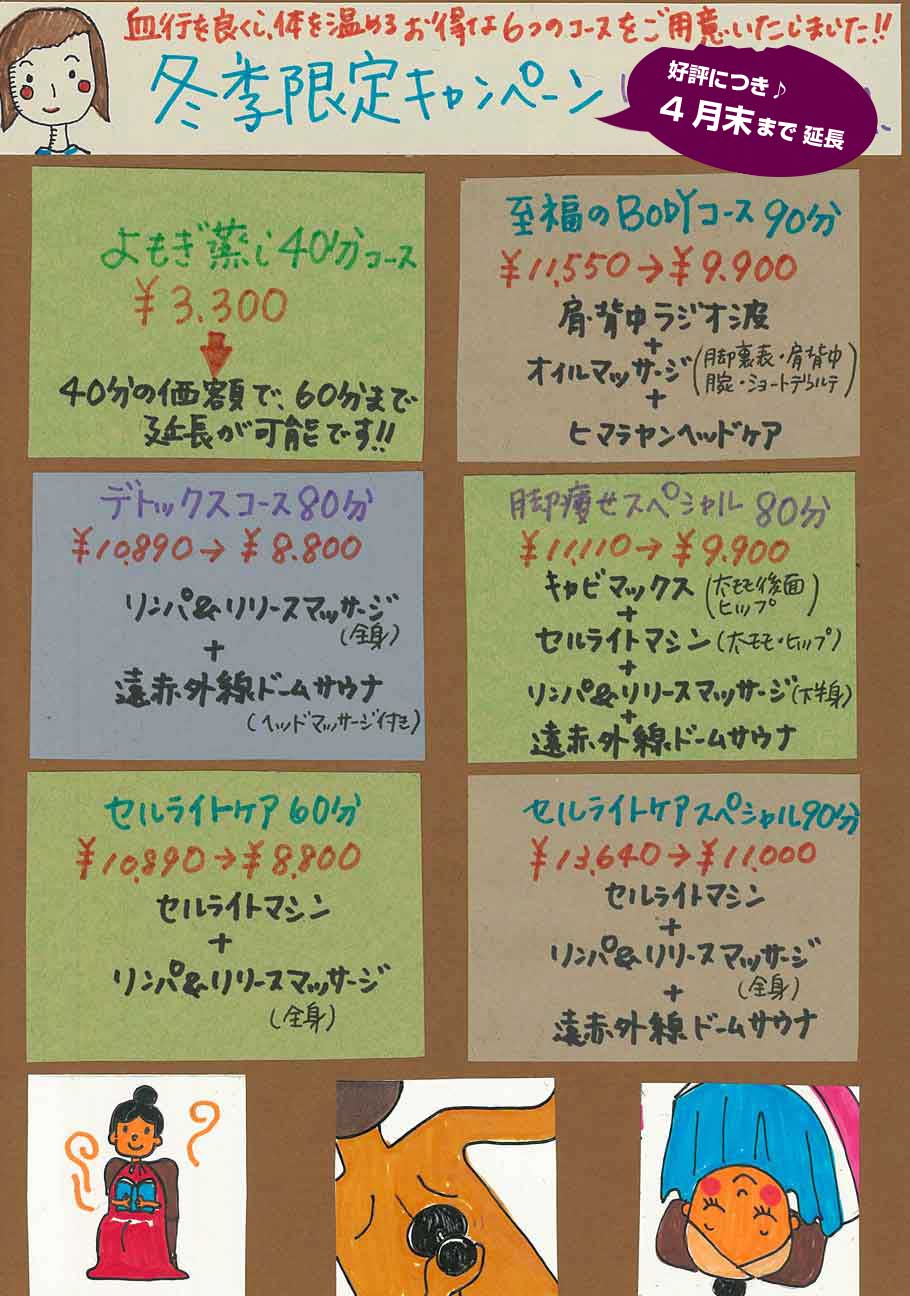 血行を良くし、体を温めるお得な6つのコースをご用意いたしました!!
冬季限定キャンペーン
好評につき♪
4月末まで延長
よもぎ蒸し40分コース
¥3.300
40分の価額で、60分まで
延長が可能です!!
至福のBODYコース90分
¥11,550→¥9.900
肩・背中ラジオ波
+
オイルマッサージ(脚裏表・肩背中
腕・ショートデコルテ)
+
ヒマラヤンヘッドケア
デトックスコース80分
¥10,890→¥8.800
リンパ&リリースマッサージ
(全身)
+
遠赤外線ドームサウナ
(ヘッドマッサージ付き)
脚痩せスペシャル80分
¥11,110→¥9.900
キャビマックス(太モモ後面
ヒップ)
+
セルライトマシン(太モモ・ヒップ)
+
リンパ&リリースマッサージ(下半身)
+
遠赤外線ドームサウナ
セルライトケア60分
¥10,890→¥8,800
セルライトマシン
+
リンパ&リリースマッサージ
(全身)
セルライトケアスペシャル90分
¥13,640→¥11,000
セルライトマシン
+
リンパ&リリースマッサージ
(全身)
+
遠赤外線ドームサウナ